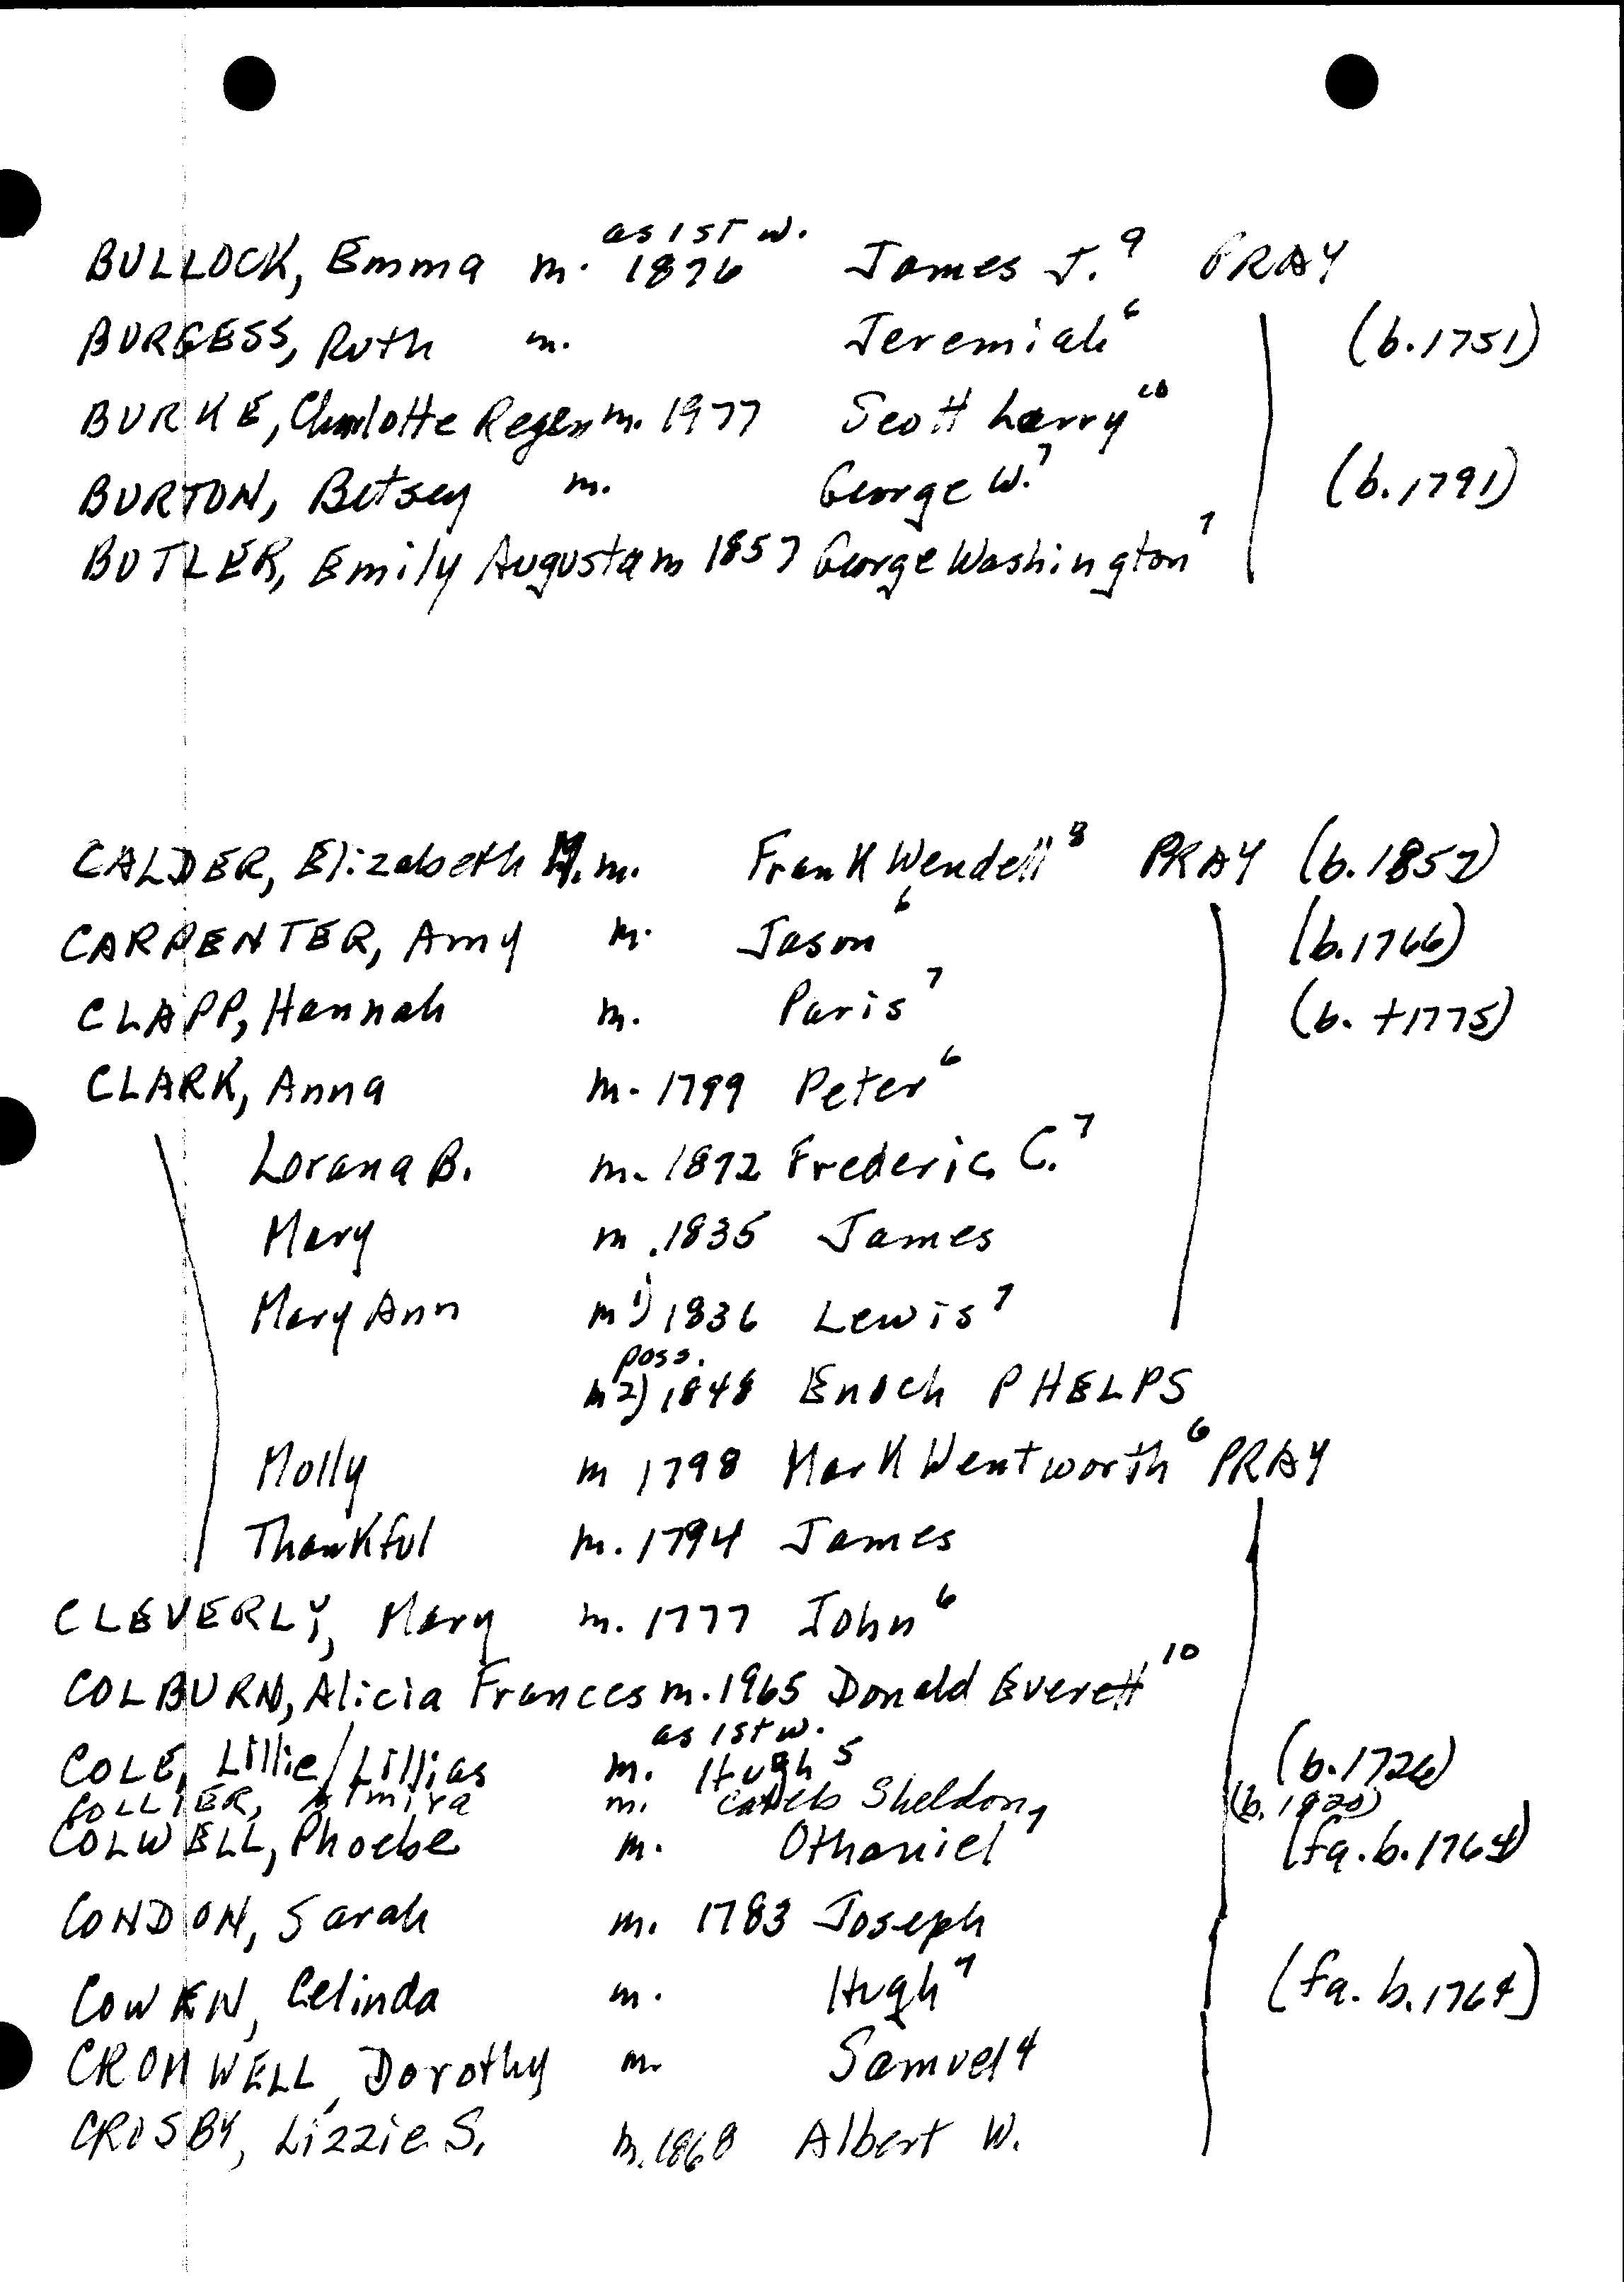 as 1st w.
BULLOCK, Emma m. 1876 James J.⁹ PRAY
BURGESS, Ruth m. Jeremiah⁶ (b. 1751)
BURKE, Charlotte Regen m. 1977 Scott Larry¹⁰
BURTON, Betsey m. George W.⁷ (b. 1791)
BUTLER, Emily Augusta m 1857 George Washington⁷
CALDER, Elizabeth M. m. Frank Wendell⁸ PRAY (b. 1857)
CARPENTER, Amy m. Jason⁶ (b. 1766)
CLAPP, Hannah m. Paris⁷ (b. +1775)
CLARK, Anna m. 1799 Peter⁶
Lorana B. m. 1872 Frederic C.⁷
Mary m. 1835 James
Mary Ann m 1) 1836 Lewis⁷
poss.
m 2) 1848 Enoch PHELPS
Molly m 1798 Mark Wentworth⁶ PRAY
Thankful m. 1794 James
CLEVERLY, Mary m. 1777 John⁶
COLBURN, Alicia Frances m. 1965 Donald Everett¹⁰
as 1st w.
COLE, Lillie/Lillias m. Hugh⁵ (b. 1726)
COLLIER, Almira m. Caleb Sheldon (b. 1820)
COLWELL, Phoebe m. Othaniel⁷ (fa. b. 1764)
CONDON, Sarah m. 1783 Joseph
COWEN, Celinda m. Hugh⁷ (fa. b. 1764)
CROMWELL, Dorothy m. Samuel⁴
CROSBY, Lizzie S. m. 1868 Albert W.